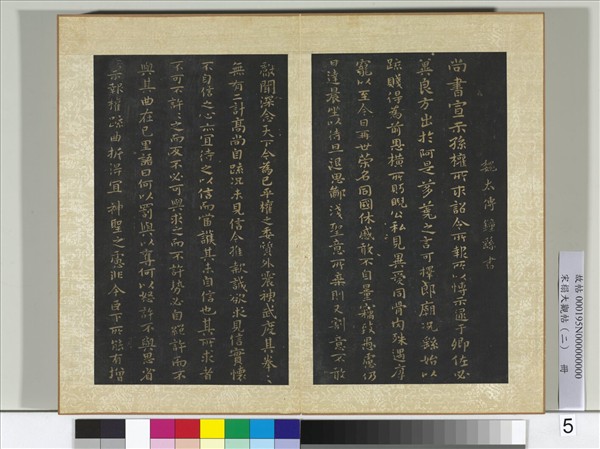 魏太傅鍾繇書
尚書宣示孫權所求詔令所報所以博示逮于卿佐必
冀良方出於阿是芻蕘之言可擇郎廟況繇始以
疏賤得為前恩橫所盻睨公私見異愛同骨肉殊遇厚
寵以至今日再世榮名同國休慼敢不自量竊致愚慮仍
日達晨坐以待旦退思鄙淺聖意所棄則又割意不敢
獻聞深念天下今為已平權之委質外震神武度其拳拳
無有二計高尚自疏況未見信今推款誠欲求見信實懷
不自信之心亦宜待之以信而當護其未自信也其所求者
不可不許許之而反不必可與求之而不許勢必自絕許而不
與其曲在己里語曰何以罰與以奪何以怒許不與思省
所示報權疏曲折得宜神聖之慮非今臣下所能有增
故帖000195N000000000
宋搨大觀帖(二) 冊
5